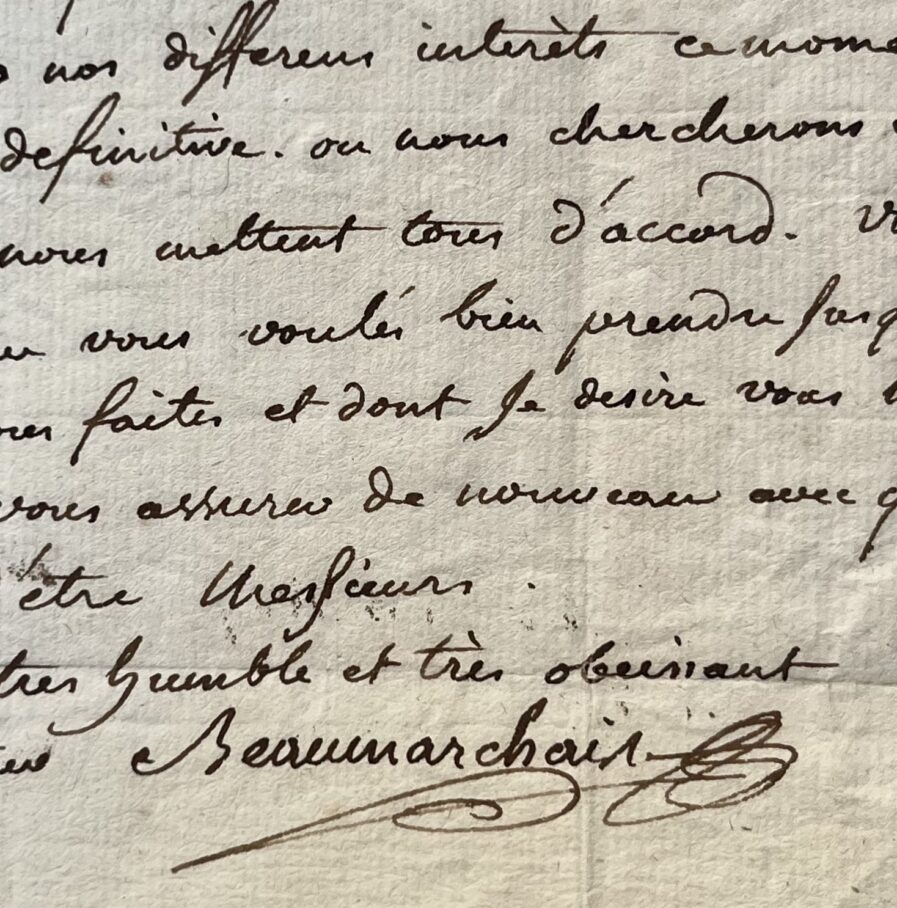 nos differens interèts ce mome
definitive. ou nous chercherons
nous mettent tous d'accord. V
vous voulés bien prendre jusq
faites et dont Je desire vous
vous assurer de nouveau avec q
être Messieurs.
tres humble et très obeissant
Beaumarchais